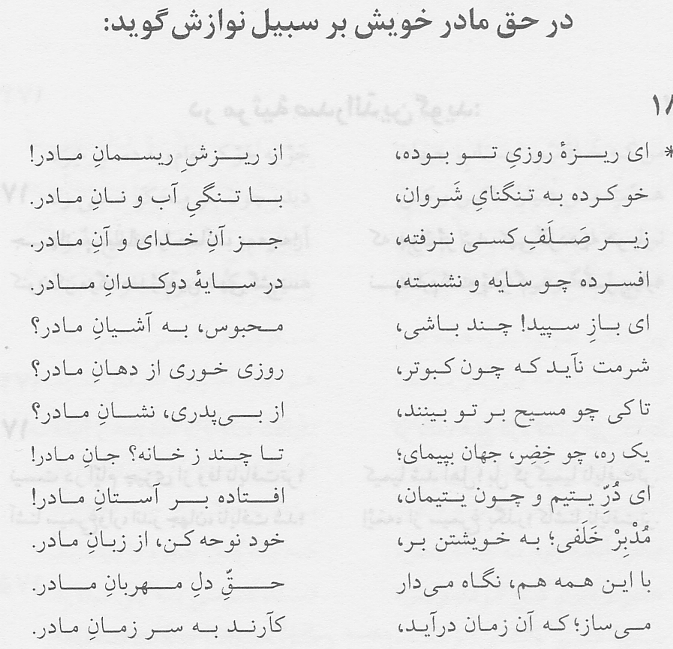 در حق مادر خویش بر سبیل نوازش گوید:
۱۸
* ای ریزهٔ روزیِ تو بوده، از ریزشِ ریسمانِ مادر!
خو کرده به تنگنایِ شَروان، با تنگیِ آب و نانِ مادر.
زیر صَلَفِ کسی نرفته، جز آنِ خدای و آنِ مادر.
افسرده چو سایه و نشسته، در سایهٔ دوکدانِ مادر.
ای بازِ سپید! چند باشی، محبوس، به آشیانِ مادر؟
شرمت نآید که چون کبوتر، روزی خوری از دهانِ مادر؟
تا کی چو مسیح بر تو بینند، از بی‌پدری، نشانِ مادر؟
یک ره، چو خضر، جهان بپیمای؛ تا چند ز خانه؟ جانِ مادر!
ای دُرِّ یتیم و چون یتیمان، افتاده بر آستانِ مادر!
مُدْبِرْ خَلَفی؛ به خویشتن بر، خود نوحه کن، از زبانِ مادر.
با این همه هم، نگاه می‌دار حقِّ دلِ مهربانِ مادر.
می‌ساز؛ که آن زمان درآید، کآرند به سر زمانِ مادر.